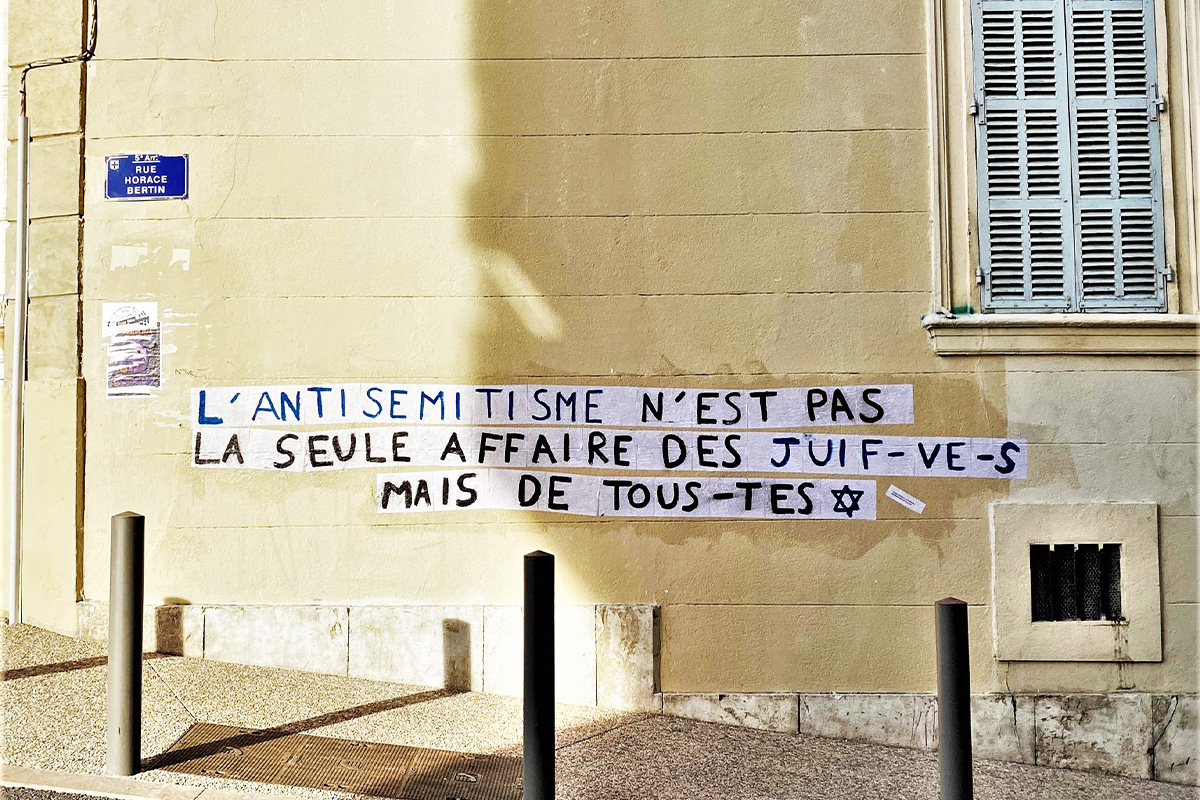 5e Arr.
RUE
HORACE
BERTIN
L'ANTISEMITISME N'EST PAS
LA SEULE AFFAIRE DES JUIF-VE-S
MAIS DE TOUS-TES